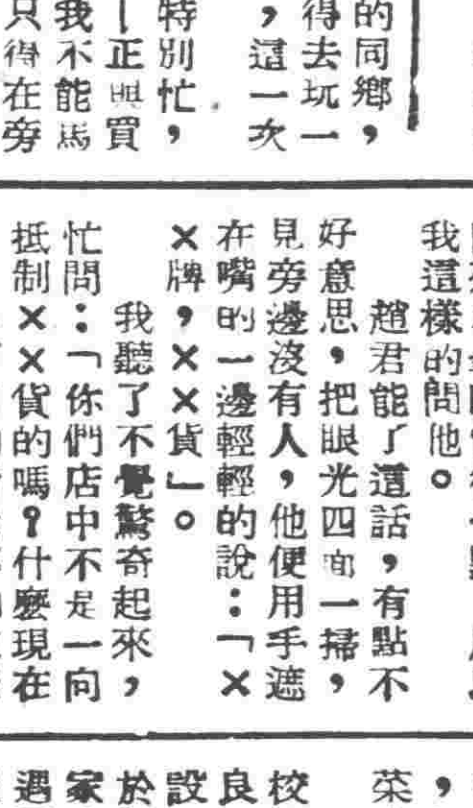 的同鄉，
得去玩一
，這一次
特別忙，
—正與買
我不能馬
只得在旁
我這樣的問他。
趙君能了這話，有點不
好意思，把眼光四面一掃，
見旁邊沒有人，他便用手遮
在嘴的一邊輕輕的說：「×
×牌，××貨」。
我聽了不覺驚奇起來，
忙問：「你們店中不是一向
抵制××貨的嗎？什麼現在
，
菜
校
良
設
於
家
遇